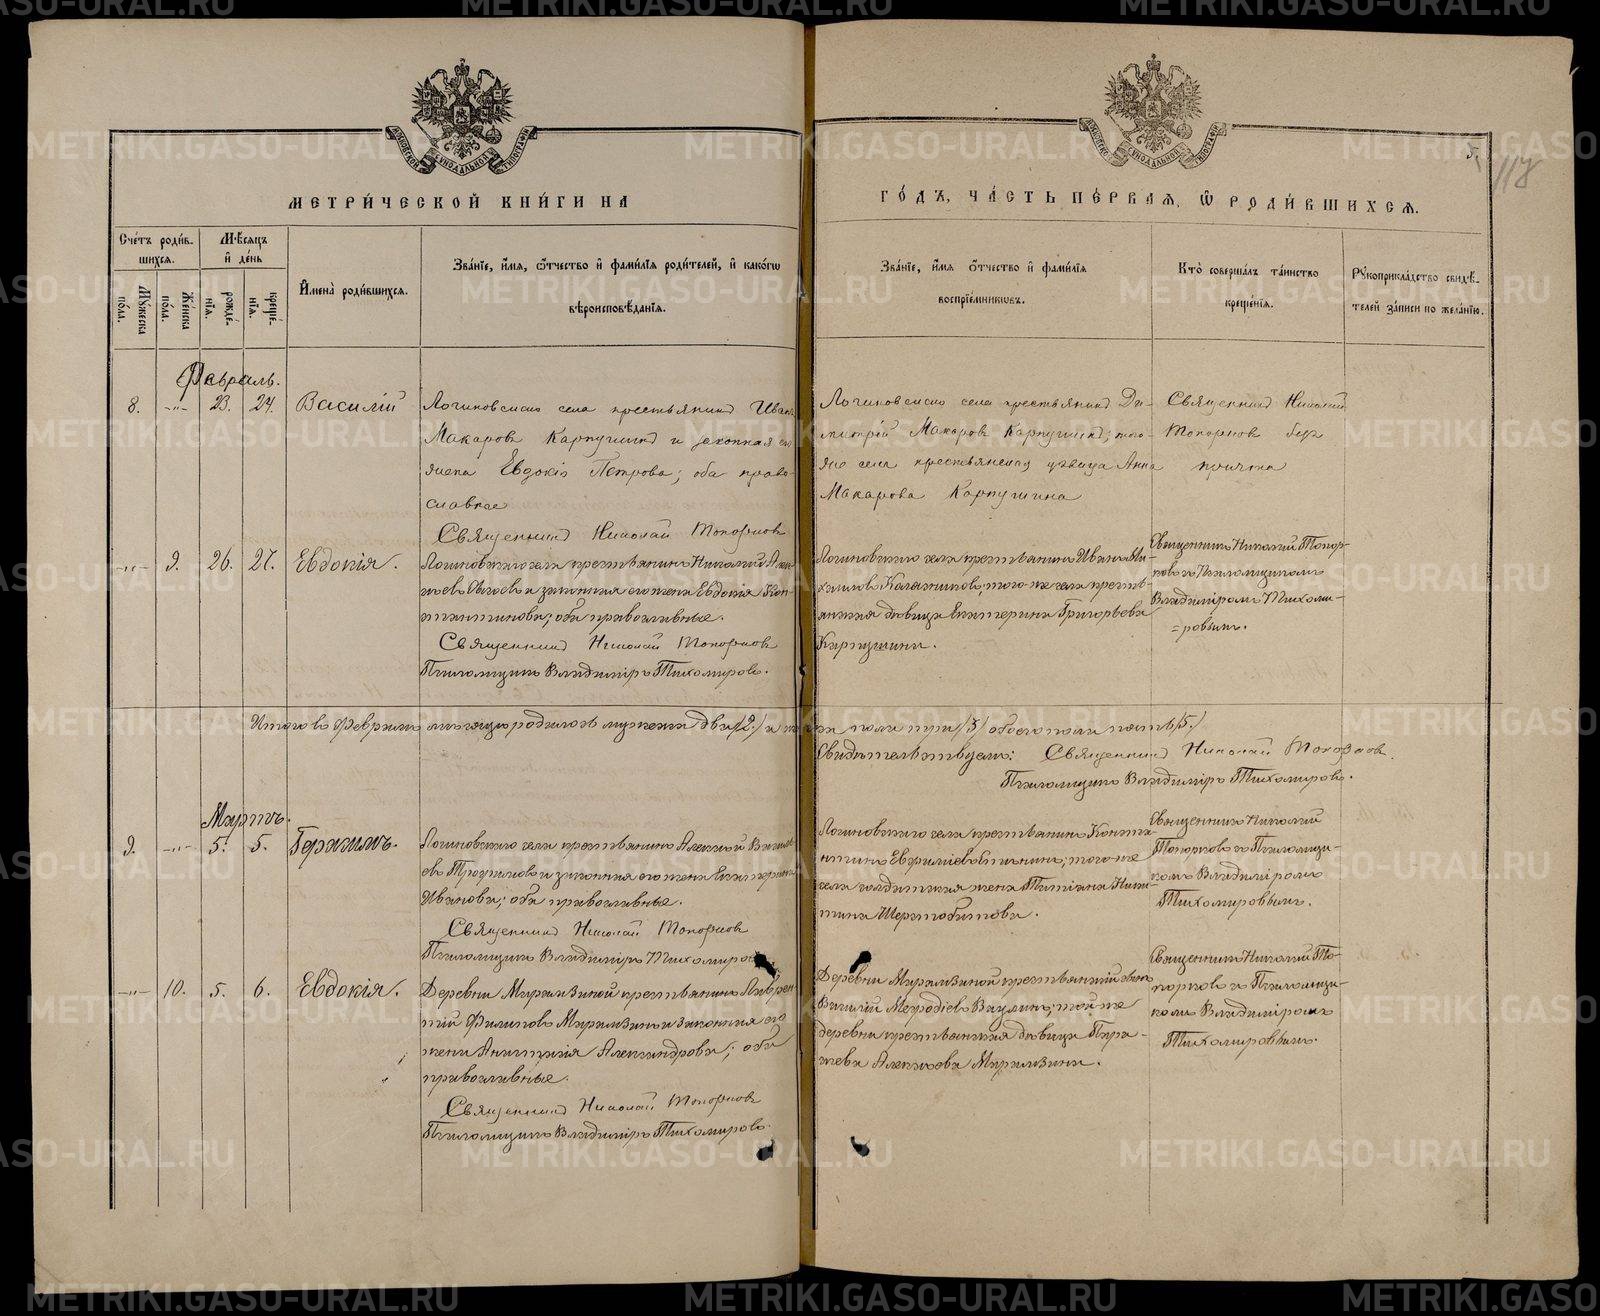 МЕТРИ́ЧЕСКОЙ КНИ́ГИ НА
ГО́ДЪ, ЧА́СТЬ ПЕ́РВАЯ, Ѿ РОДИ́ВШИХСЯ.
5.
118
Сче́тъ роди́вшихся.
Му́жеска по́ла.
Же́нска по́ла.
Мѣ́сяцъ и де́нь
рожде́нїя.
креще́нїя.
И́мена̀ роди́вшихся.
Зва́нїе, и́мя, ѻ́тчество и фами́лїя роди́телей, и како́гѡ
вѣроисповѣ́данїя.
Зва́нїе, и́мя ѻ́тчество и фами́лїя
воспрїе́мниковъ.
Кто̀ соверша́лъ та́инство
креще́нїя.
Рꙋкоприкла́дство свидѣ́-
телей за́писи по жела́нїю.
Февраль.
8. -"- 23. 24. Василій
Логиновскаго села крестьянинъ Иванъ
Макаровъ Карпушинъ и законная его
жена Евдокія Петрова; оба право-
славные
Священникъ Николай Топорковъ
Логиновскаго села крестьянинъ Ди-
митрій Макаровъ Карпушинъ; того-
же села крестьянская дѣвица Анна
Макарова Карпушина
Священникъ Николай
Топорковъ безъ
причта
-"- 9. 26. 27. Евдокія.
Логиновскаго села крестьянинъ Николай
и законная его жена Евдокія Кон-
стантинова; оба православные.
Священникъ Николай Топорковъ
Псаломщикъ Владиміръ Тихомировъ.
Логиновскаго села крестьянинъ Иванъ
того-же села кресть-
янская дѣвица Екатерина Григорьева
Карпушина.
Священникъ Николай Топор-
ковъ съ Псаломщикомъ
Владиміромъ Тихоми-
=ровымъ.
Итого въ Февралѣ мѣсяцѣ родилось мужеска два /2/ и женска пола три /3/ обоего пола пять /5/
Свидѣтельствуемъ: Священникъ Николай Топорковъ.
Псаломщикъ Владиміръ Тихомировъ.
Мартъ.
9. -"- 5. 5. Герасимъ.
Логиновскаго села крестьянинъ Алексѣй Василь-
евъ и законная его жена Екатерина
Иванова; оба православные.
Священникъ Николай Топорковъ
Псаломщикъ Владиміръ Тихомировъ
Логиновскаго села крестьянинъ Конста-
нтинъ Евфиміевъ того-же
села солдатская жена Татіана Ники-
тина Шерстобитова.
Священникъ Николай
Топорковъ съ Псаломщи-
комъ Владиміромъ
Тихомировымъ.
-"- 10. 5. 6. Евдокія.
Деревни Мурамзиной крестьянинъ Лаврен-
тій Филиповъ Мурамзинъ и законная его
жена Анастасія Александрова; оба
православные.
Священникъ Николай Топорковъ
Псаломщикъ Владиміръ Тихомировъ.
Деревни Мурамзиной крестьянскій сынъ
Василій Меѳодіевъ Ваулинъ; той же
деревни крестьянская дѣвица Пара-
скева Алексѣева Мурамзина.
Священникъ Николай То-
порковъ съ Псаломщи-
комъ Владиміромъ
Тихомировымъ.
METRIKI.GASO-URAL.RU